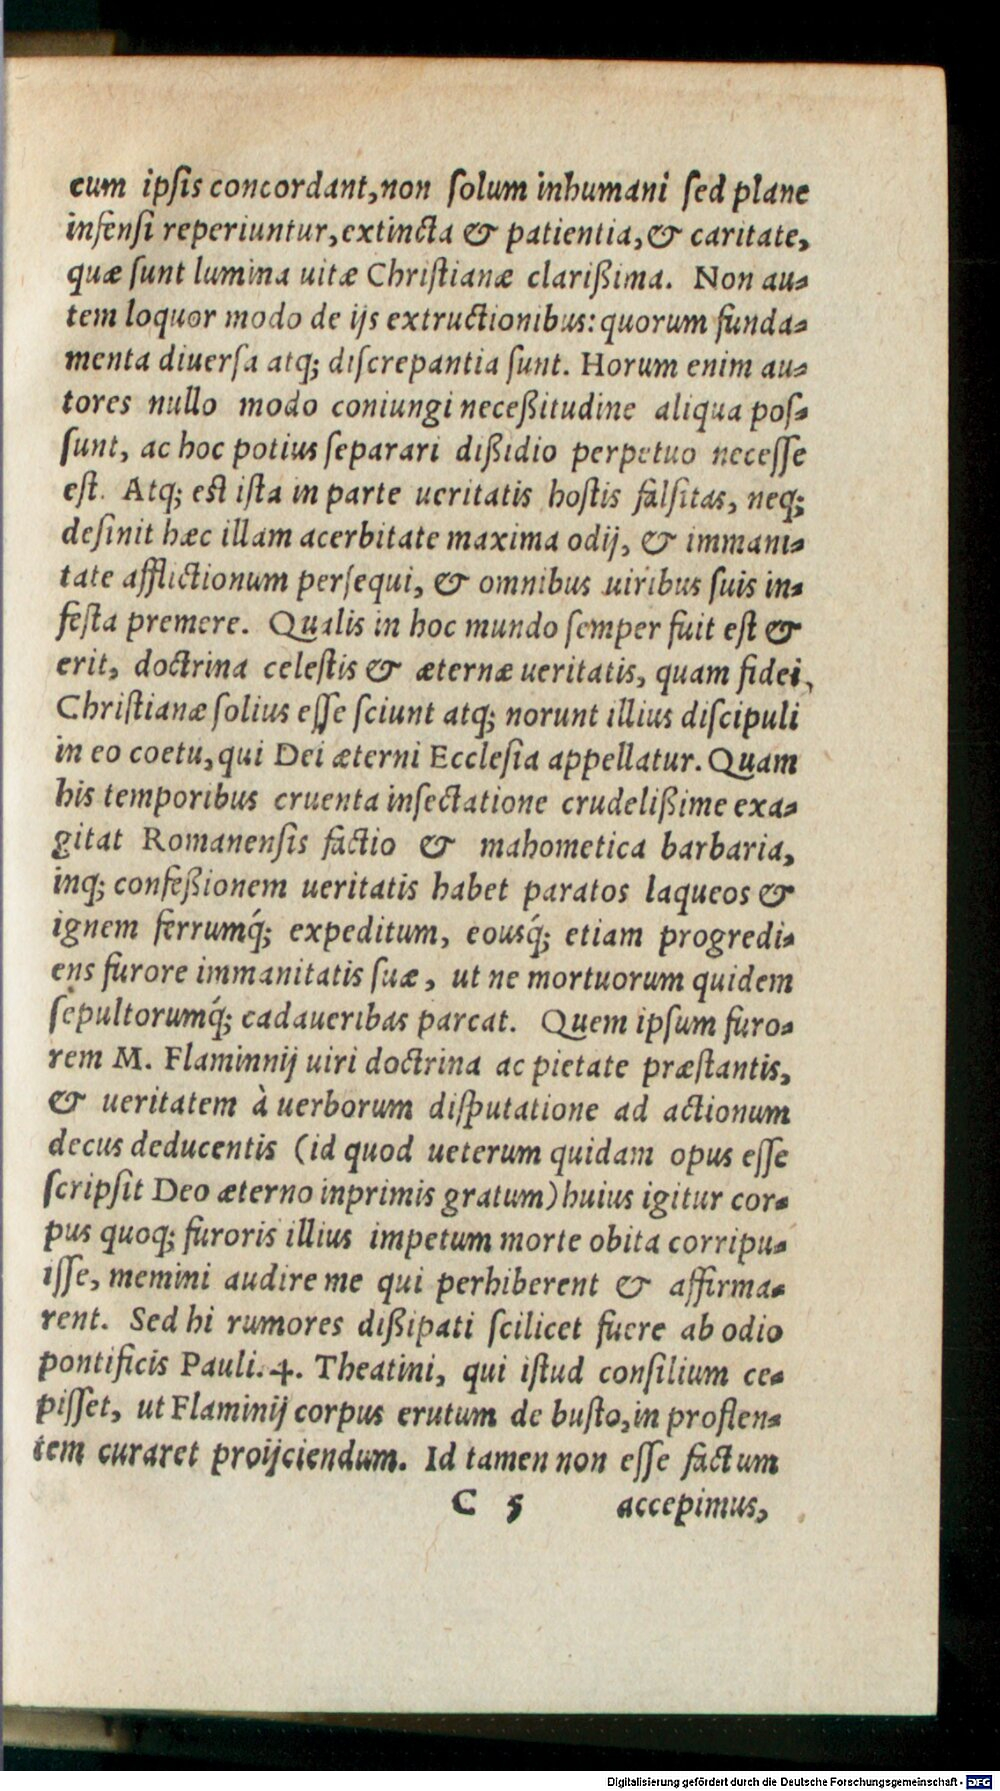 cum ipſis concordant, non ſolum inhumani ſed plane
infenſi reperiuntur, extincta & patientia, & caritate,
quæ ſunt lumina uitæ Chriſtianæ clarißima. Non au⸗
tem loquor modo de ijs extructionibus: quorum funda⸗
menta diuerſa atq; diſcrepantia ſunt. Horum enim au⸗
tores nullo modo coniungi neceßitudine aliqua poſ⸗
ſunt, ac hoc potius ſeparari dißidio perpetuo neceſſe
eſt. Atq; eſt iſta in parte ueritatis hoſtis falſitas, neq;
deſinit hæc illam acerbitate maxima odij, & immani⸗
tate afflictionum perſequi, & omnibus uiribus ſuis in⸗
feſta premere. Qualis in hoc mundo ſemper fuit eſt &
erit, doctrina celeſtis & æternæ ueritatis, quam fidei,
Chriſtianæ ſolius eſſe ſciunt atq; norunt illius diſcipuli
in eo coetu, qui Dei æterni Eccleſia appellatur. Quam
his temporibus cruenta inſectatione crudelißime exa⸗
gitat Romanenſis factio & mahometica barbaria,
inq; confeßionem ueritatis habet paratos laqueos &
ignem ferrumq́; expeditum, eousq́; etiam progredi⸗
ens furore immanitatis ſuæ, ut ne mortuorum quidem
ſepultorumq́; cadaueribas parcat. Quem ipſum furo⸗
rem M. Flaminnij uiri doctrina ac pietate præſtantis,
& ueritatem à uerborum diſputatione ad actionum
decus deducentis (id quod ueterum quidam opus eſſe
ſcripſit Deo æterno inprimis gratum) huius igitur cor⸗
pus quoq; furoris illius impetum morte obita corripu⸗
iſſe, memini audire me qui perhiberent & affirma⸗
rent. Sed hi rumores dißipati ſcilicet fuere ab odio
pontificis Pauli. 4. Theatini, qui iſtud conſilium ce⸗
piſſet, ut Flaminij corpus erutum de buſto, in proflen⸗
tem curaret proijciendum. Id tamen non eſſe factum
C 5 accepimus,
Digitalisierung gefördert durch die Deutsche Forschungsgemeinschaft - DFG